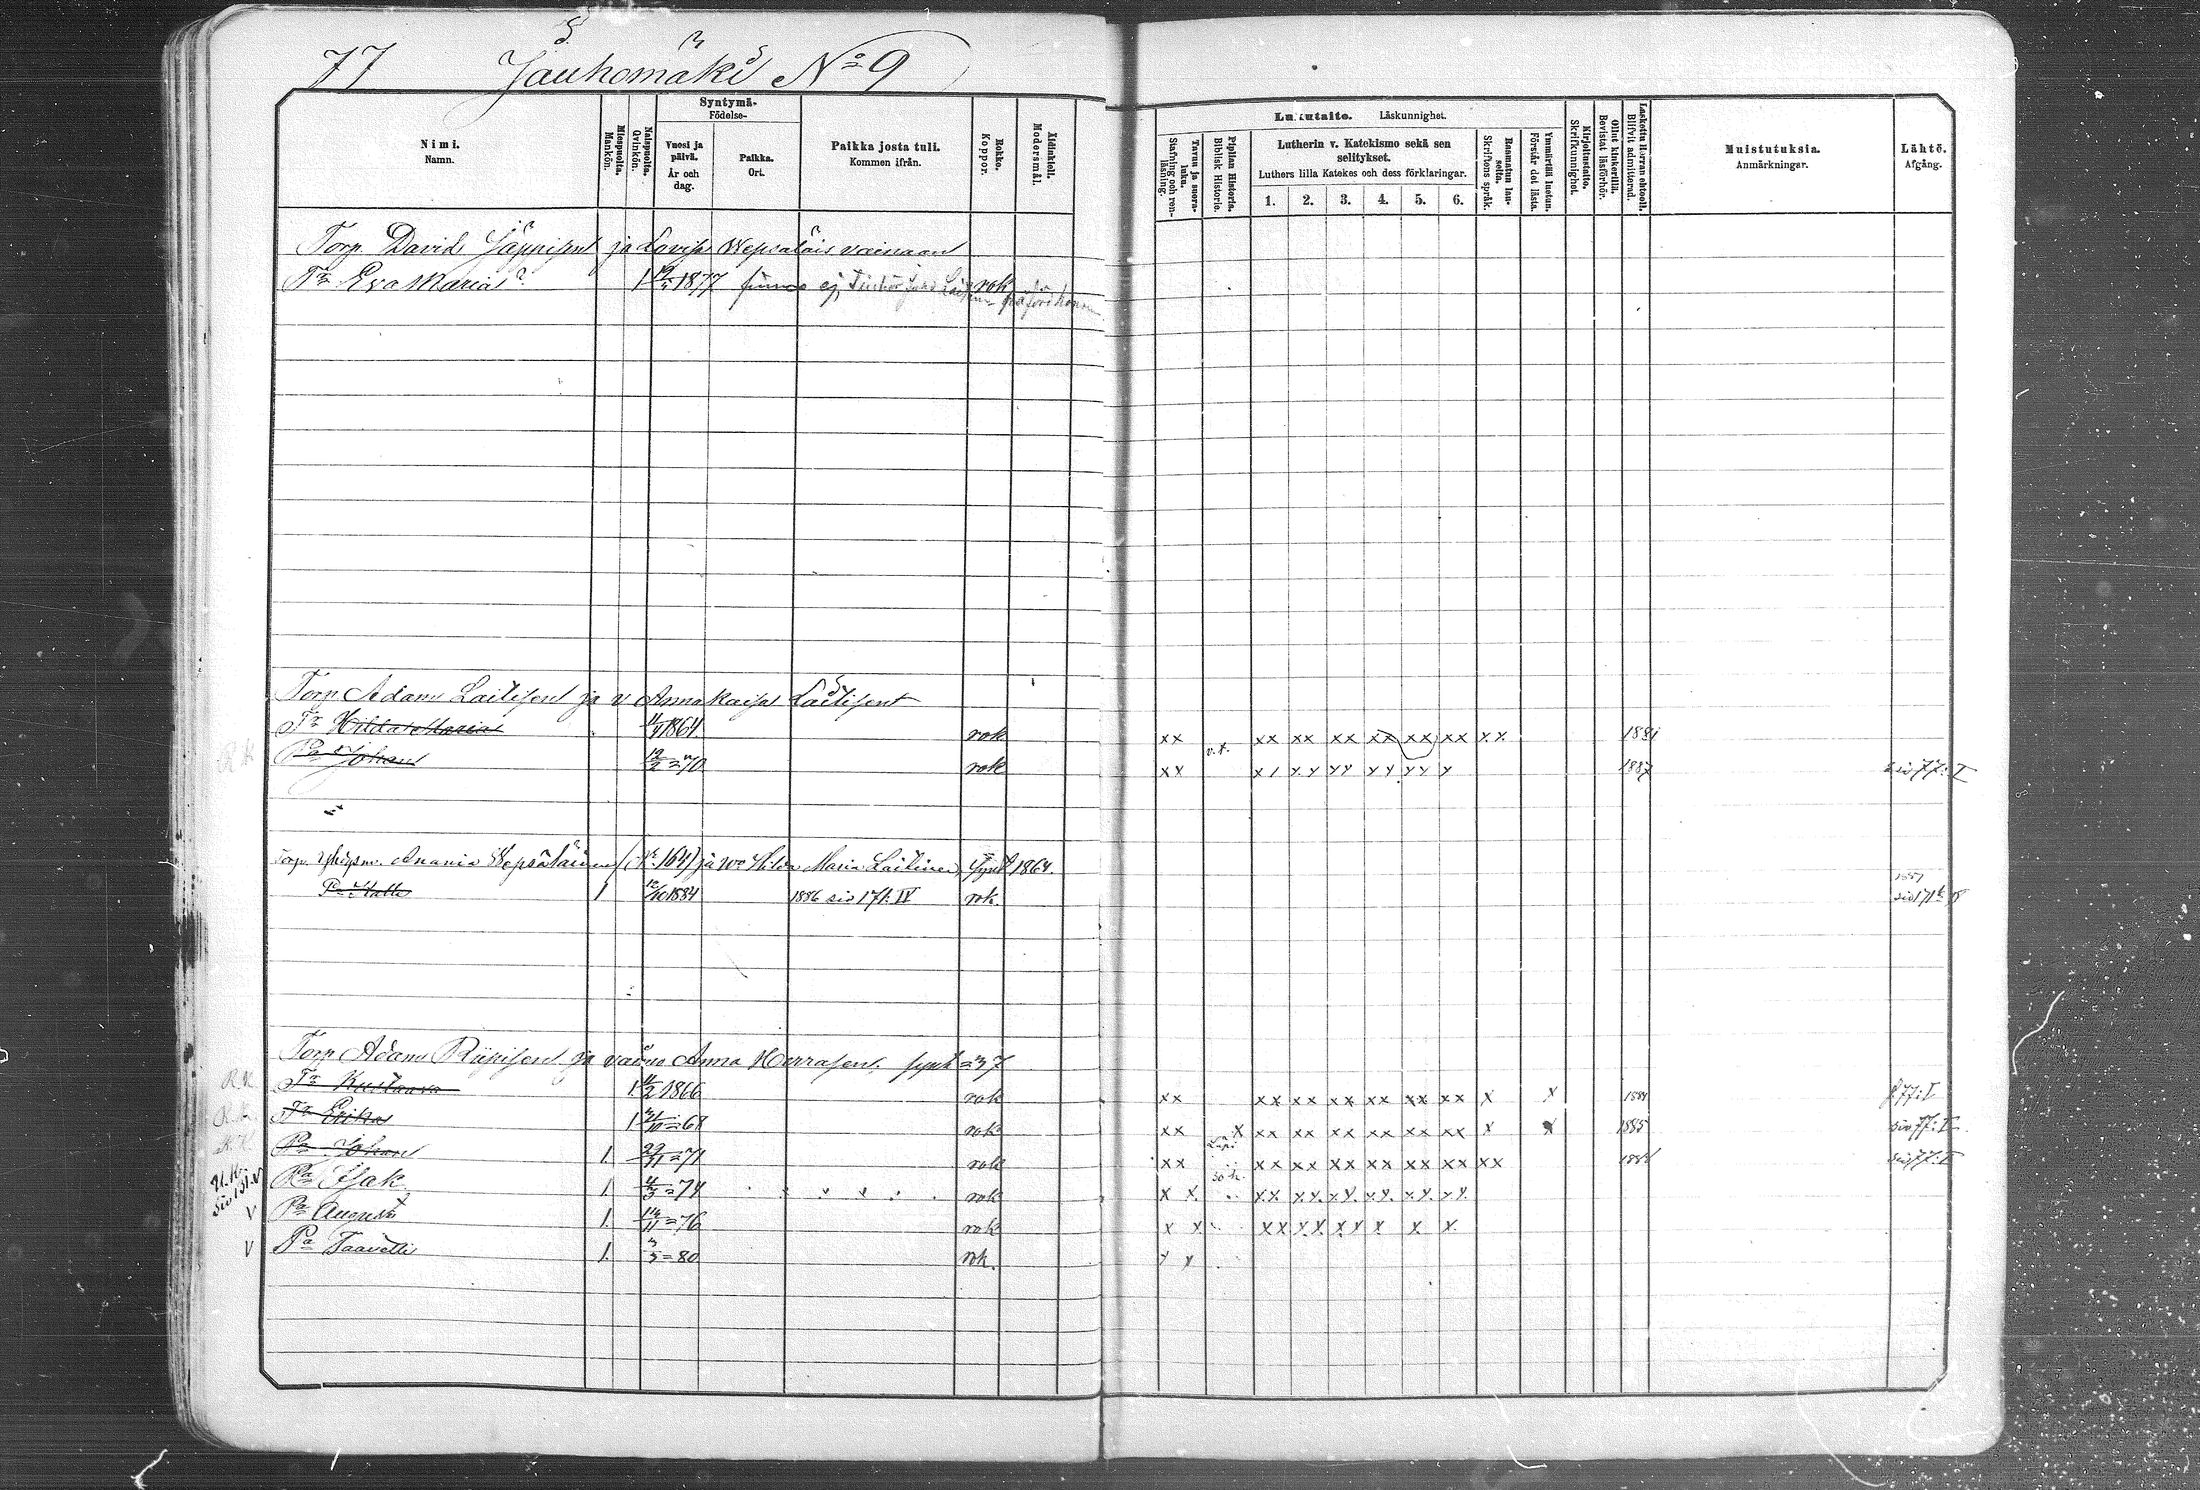 77 Jauhomäki No 9
Nimi. Namn.
Miespuolta. Mankön.
Naispuolta. Qvinkön.
Syntymä- Födelse-
Vuosi ja päivä. År och dag.
Paikka. Ort.
Paikka josta tuli. Kommen ifrån.
Rokko. Koppor.
Äidinkieli. Modersmål.
Lukutaito. Läskunnighet.
Tavuu ja suoraluku. Stafning och renläsning.
Piplian Historia. Biblisk Historie.
Lutherin v. Katekismo sekä sen selitykset.
Luthers lilla Katekes och dess förklaringar.
1. 2. 3. 4. 5. 6.
Raamatun lauseita. Skriftens språk.
Ymmärtää luetun. Förstår det lästa.
Kirjoitustaito. Skrifkunnighet.
Ollut kinkerillä. Bevistat läsförhör.
Laskettu Herran ehtool. Blifvit admitterad.
Muistutuksia. Anmärkningar.
Lähtö. Afgång.
Torp. David Jäppisent ja Lovisa Wepsäläis vainaan
Tr Eva Maria? 1 1877 finnes ej rok
Torp. Adam Laitisent ja v Anna Kaisa Laitisent
Tr Hilda Maria 1864 rok xx v.t. xx xx xx xx xx xx xx 1881
R.K. Pa Johan 12/2 = 70 rok xx x1 xx xx xx xx x 1887 siv 77: I
Torp. yhtysm. Anania Wepsäläinen (k. 164) ja wo Hilda Maria Laitinen, synt 1864.
Pa Kalle 1 12/10 1884 1886 siv 171: IV rok. 1887 siv 171
Torp Adam Riipisent ja vaimo Anna Herrasent. synt = 37
R.K. Tr Kustaava 1 11/2 1866 rok xx xx xx xx xx xx xx x x 1884 s. 77: I
R.K. Tr Erika 1 /10 = 68 rok xx x xx xx xx xx xx xx x x 1885 siv 77: I
R.K. Pa Johan 1. 29/11 = 71 rok xx xx xx xx xx xx xx xx 188 siv 77: I
R.K. siv 131. V Pa Isak 1. 4/3 = 74 rok x x xx xx xx xx xx xx
V Pa August 1. 14/11 = 76 rok x x xx xx xx x x x
V Pa Taavetti 1. 3/3 = 80 rok. x x